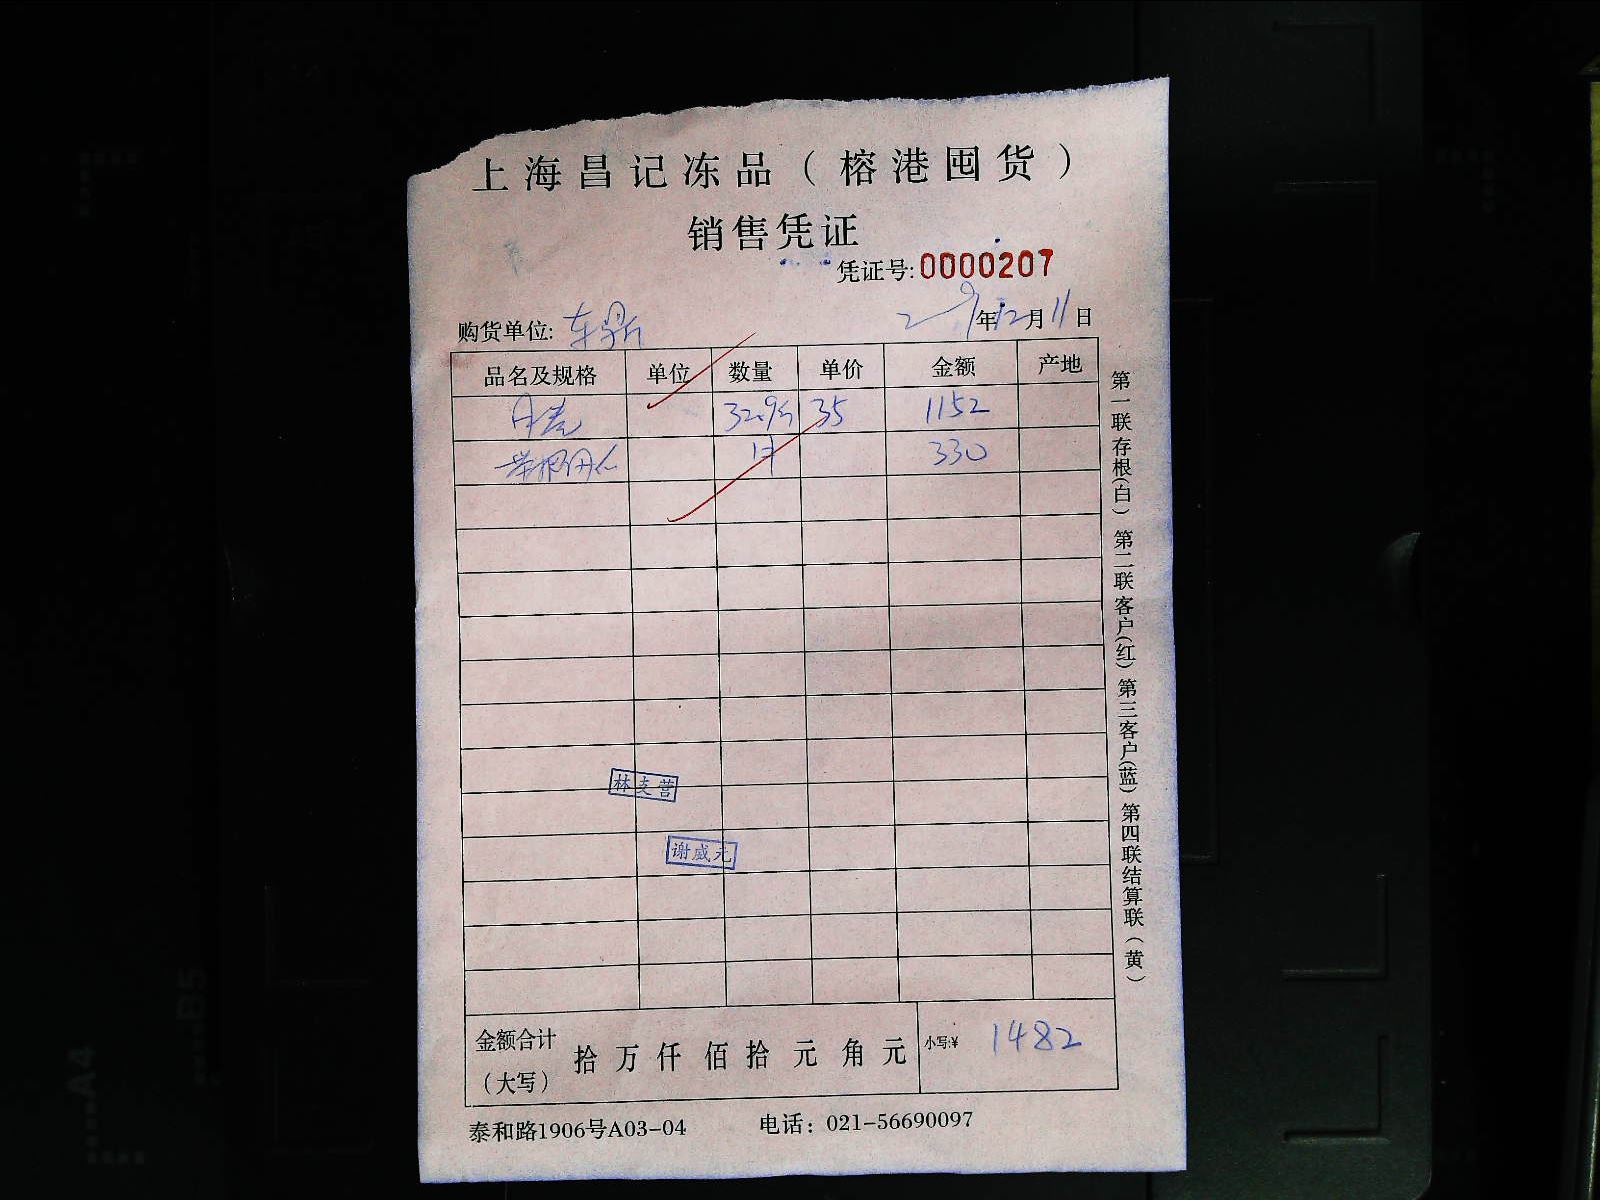 上海昌记冻品（榕港囤货）
销售凭证
凭证号:0000207
购货单位: 东鼎 年12月11日
品名及规格 单位 数量 单价 金额 产地
32.9斤 35 1152
1件 330
林支营
谢威元
金额合计（大写） 拾万仟佰拾元角元 小写:¥ 1482
泰和路1906号A03-04 电话：021-56690097
第一联存根(白) 第二联客户(红) 第三客户(蓝) 第四联结算联(黄)